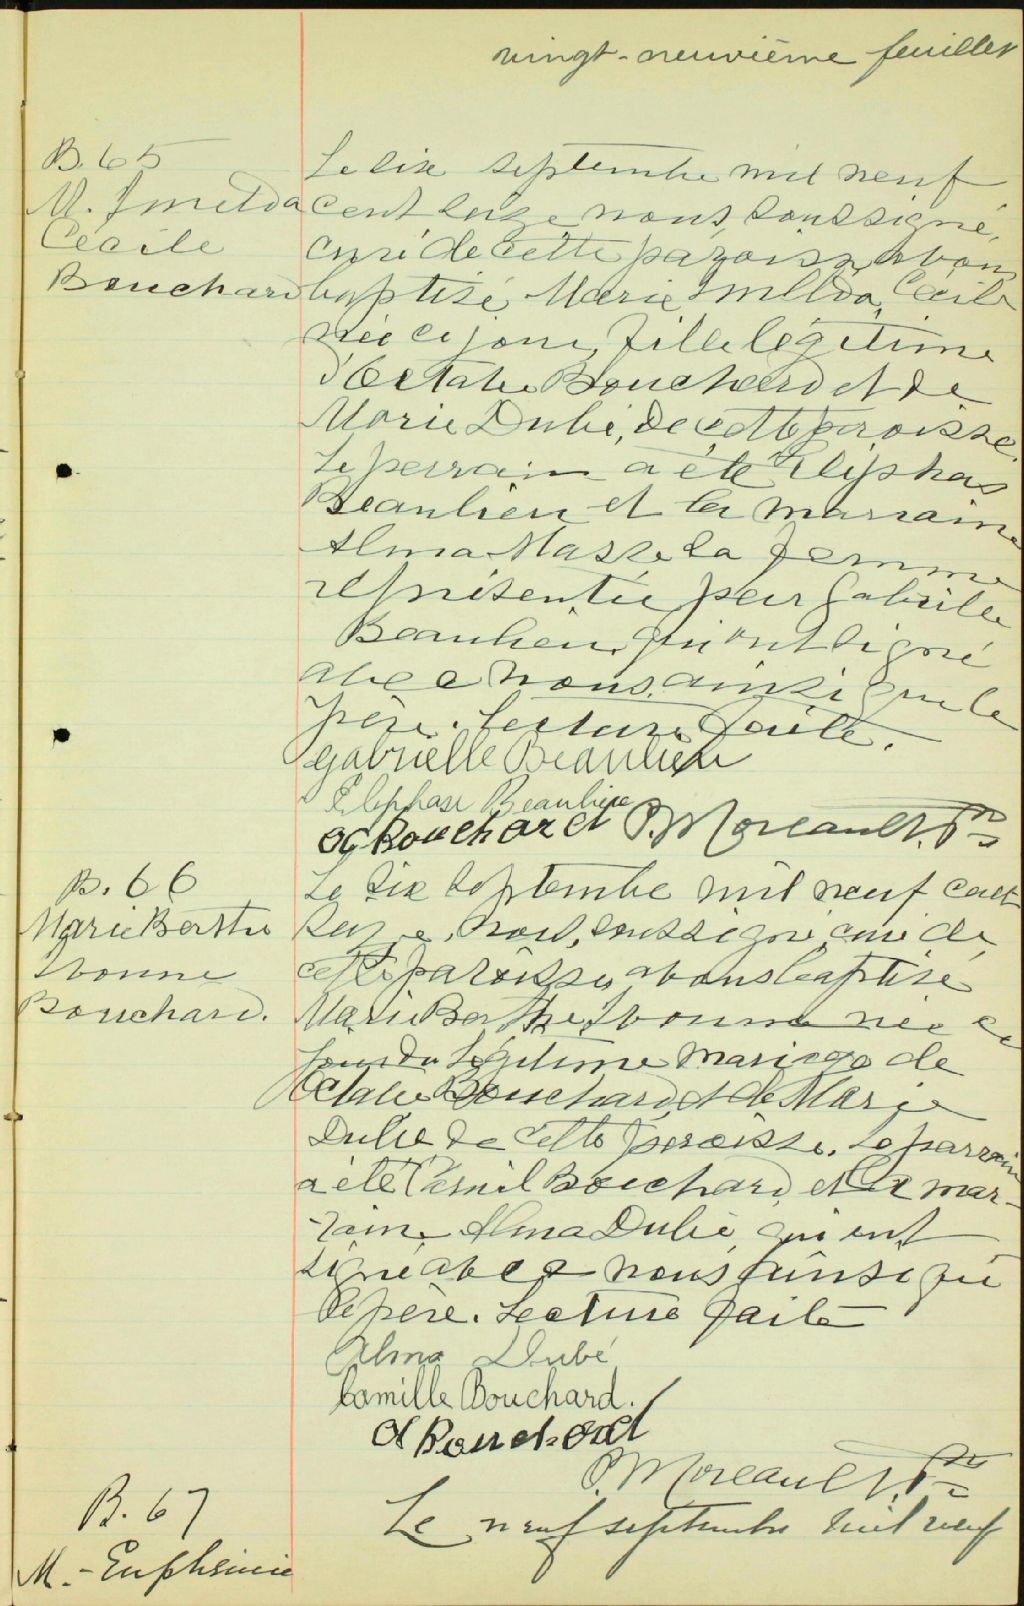 vingt-neuvième feuillet
B. 65
M. Imelda
Cécile
Bouchard
Le six septembre mil neuf
cent seize nous, soussigné,
curé de cette paroisse avons
baptisé Marie Imelda, Cécile
née ce jour, fille légitime
d'Octave Bouchard et de
Marie Dubé, de cette paroisse.
Le parrain a été Eliphas
Beaulieu et la marraine
Alma Masse sa femme
représentée par Gabrielle
Beaulieu qui ont signé
avec nous ainsi que le
père. Lecture faite.
Gabrielle Beaulieu
Eliphase Beaulieu
Oc Bouchard P. Moreault, Ptre
B. 66
Marie Berthe
Yvonne
Bouchard.
Le six septembre mil neuf cent
seize, nous, soussigné curé de
cette paroisse avons baptisé
Marie Berthe Yvonne née ce
jour du légitime mariage de
Octave Bouchard et de Marie
Dubé de cette paroisse. Le parrain
a été Camil Bouchard et la mar-
-raine Alma Dubé qui ont
signé avec nous ainsi que
le père. Lecture faite
Alma Dubé
Camille Bouchard.
Oc Bouchard
P. Moreault, Ptre
B. 67
M.-Euphémie
Le neuf septembre mil neuf